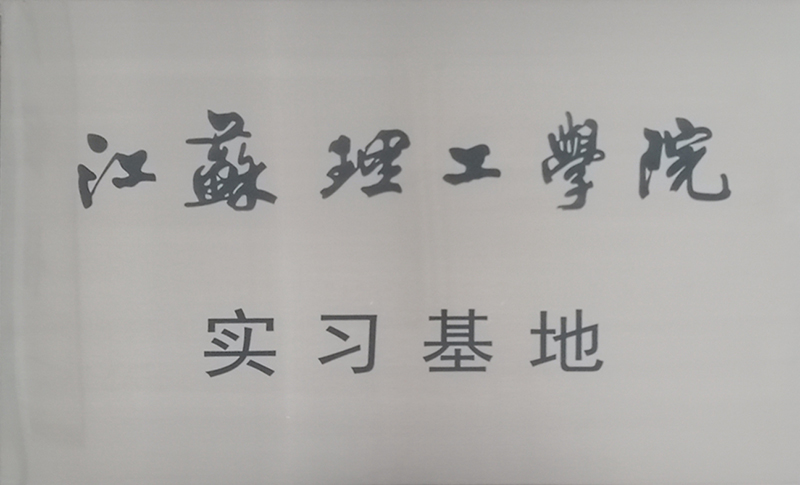 江蘇理工學院
实习基地